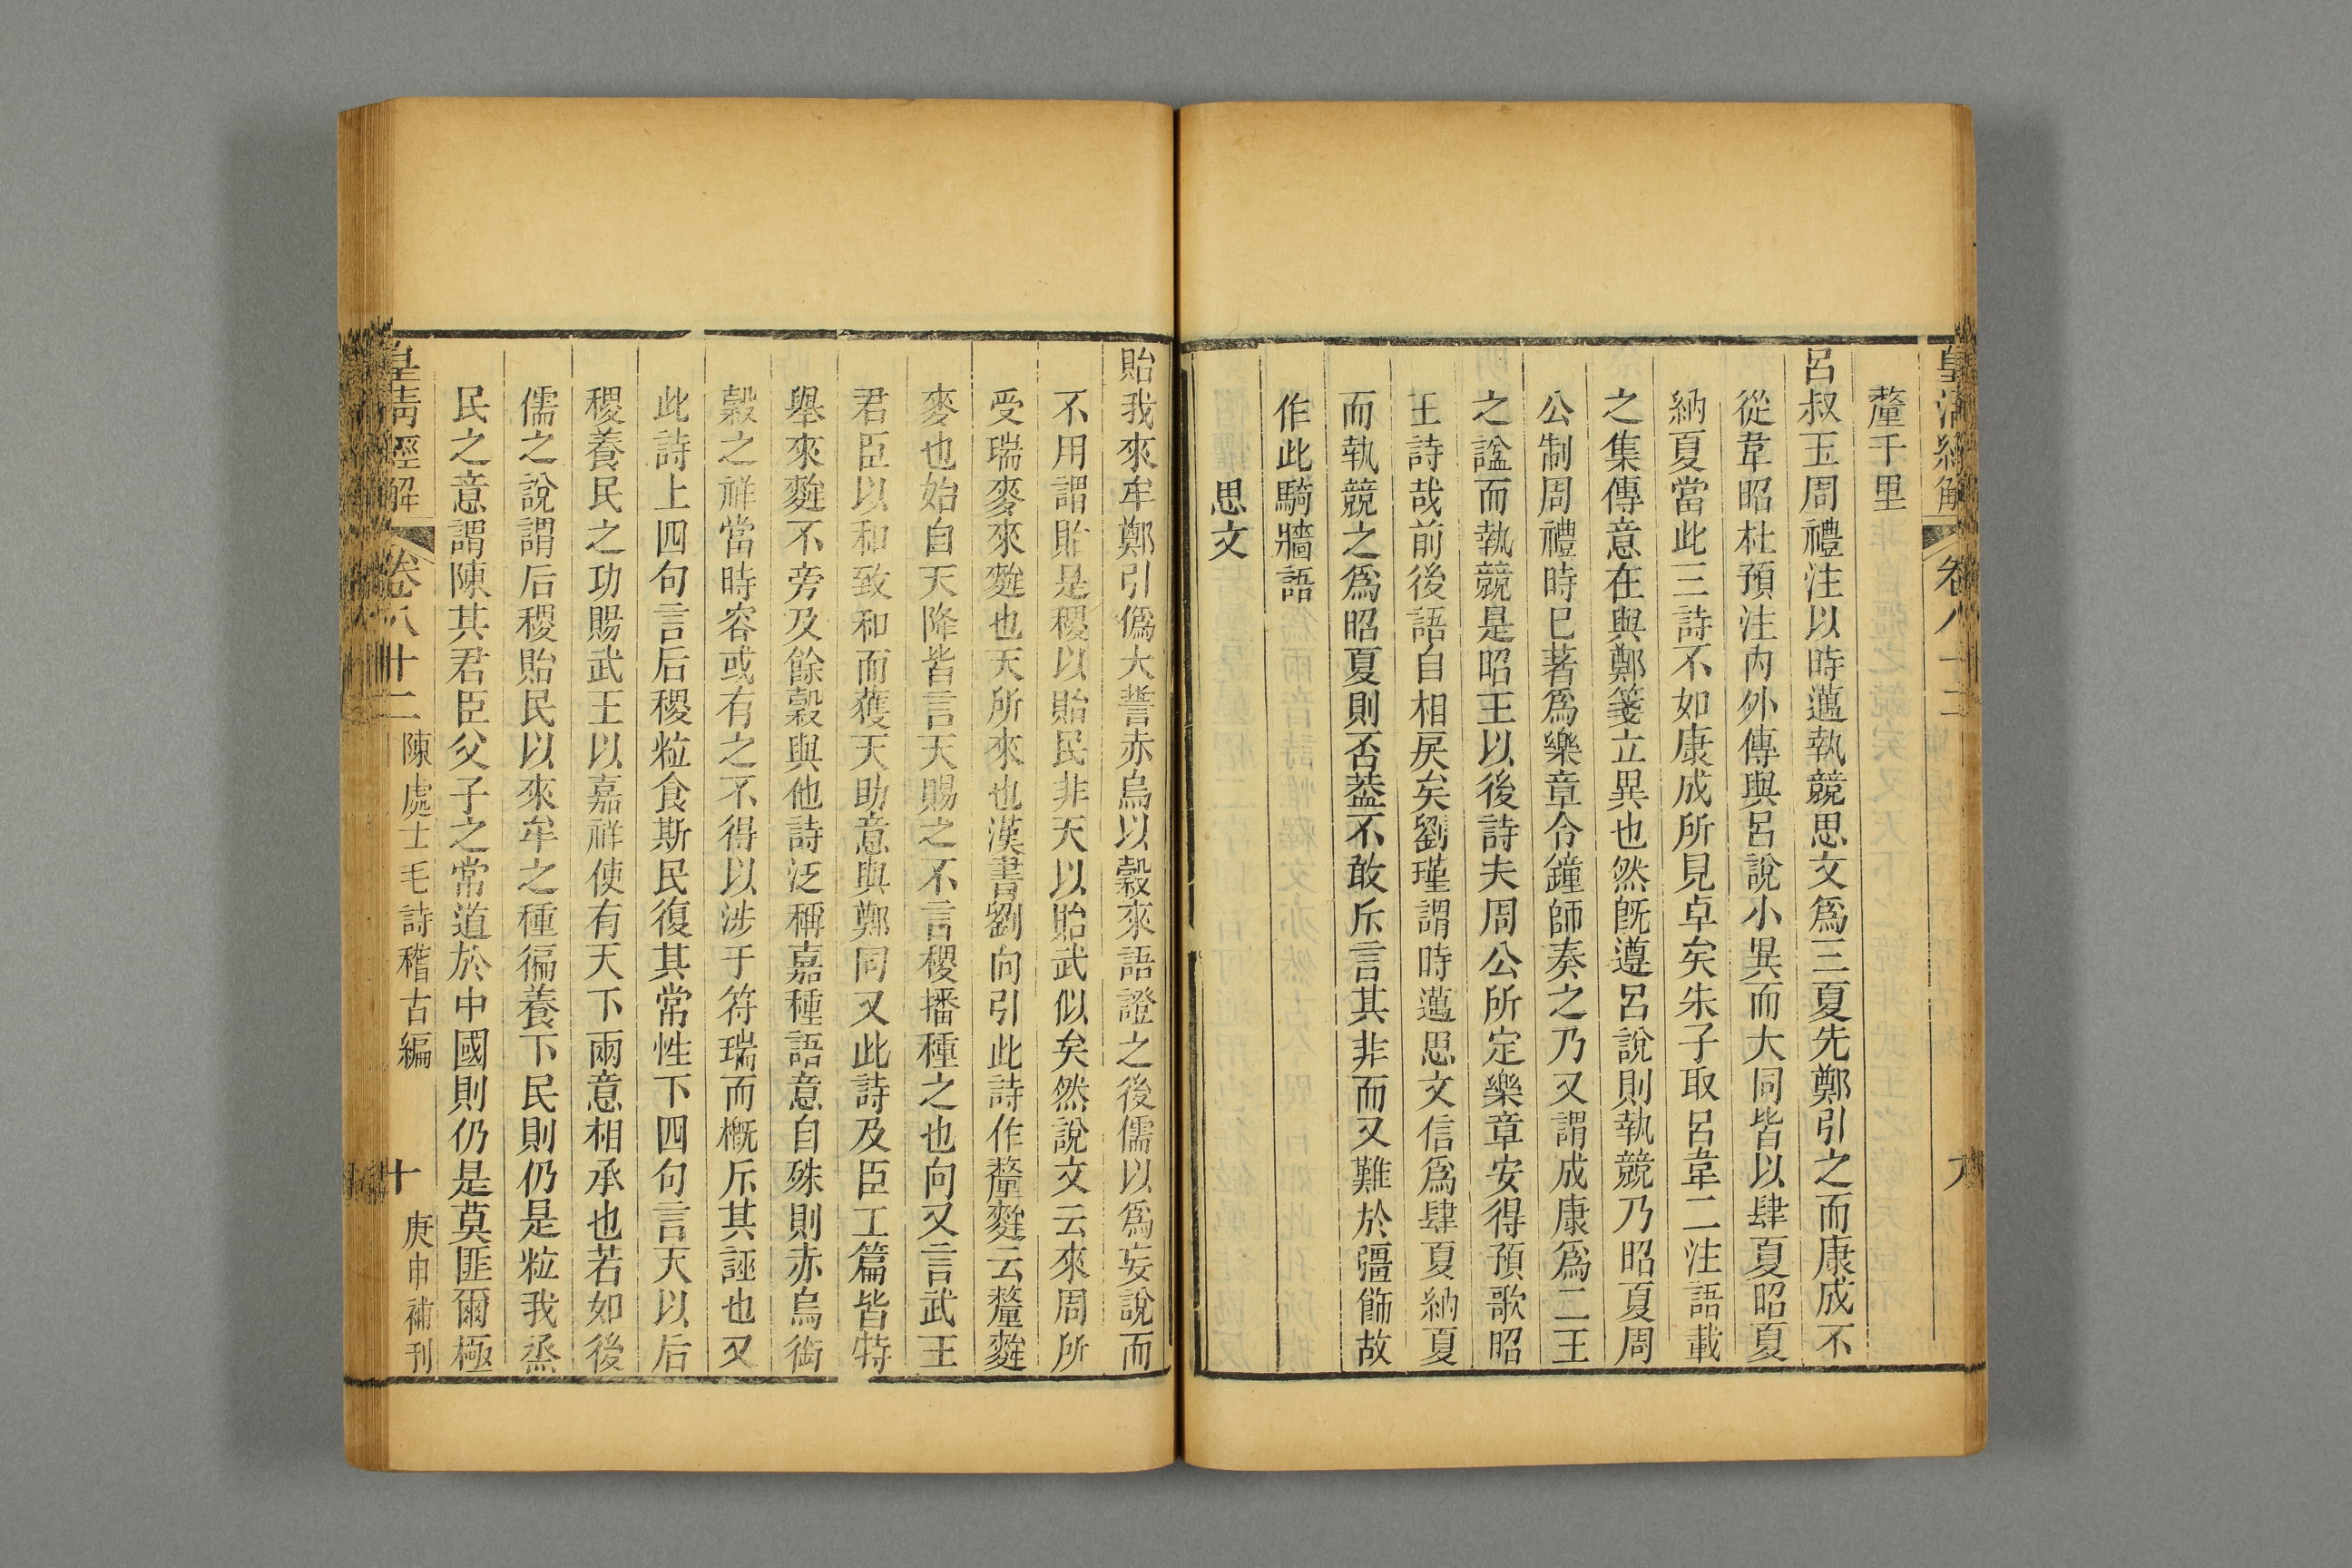 皇清經解 卷八十二 九
釐千里
呂叔玉周禮注以時邁執競思文爲三夏先鄭引之而康成不
從韋昭杜預注內外傳與呂說小異而大同皆以肆夏昭夏
納夏當此三詩不如康成所見卓矣朱子取呂韋二注語載
之集傳意在與鄭箋立異也然旣遵呂說則執競乃昭夏周
公制周禮時巳著爲樂章令鐘師奏之乃又謂成康爲二王
之諡而執競是昭王以後詩夫周公所定樂章安得預歌昭
王詩哉前後語自相戾矣劉瑾謂時邁思文信爲肆夏納夏
而執競之爲昭夏則否葢不敢斥言其非而又難於彊飾故
作此騎牆語
思文
貽我來牟鄭引僞大誓赤烏以穀來語證之後儒以爲妄說而
不用謂貽是稷以貽民非天以貽武似矣然說文云來周所
受瑞麥來麰也天所來也漢書劉向引此詩作釐麰云釐麰
麥也始自天降皆言天賜之不言稷播種之也向又言武王
君臣以和致和而獲天助意與鄭同又此詩及臣工篇皆特
舉來麰不旁及餘穀與他詩泛稱嘉種語意自殊則赤烏銜
穀之祥當時容或有之不得以涉于符瑞而槪斥其誣也又
此詩上四句言后稷粒食斯民復其常性下四句言天以后
稷養民之功賜武王以嘉祥使有天下兩意相承也若如後
儒之說謂后稷貽民以來牟之種徧養下民則仍是粒我烝
民之意謂陳其君臣父子之常道於中國則仍是莫匪爾極
皇清經解 卷八十二 陳處士毛詩稽古編 十 庚申補刊